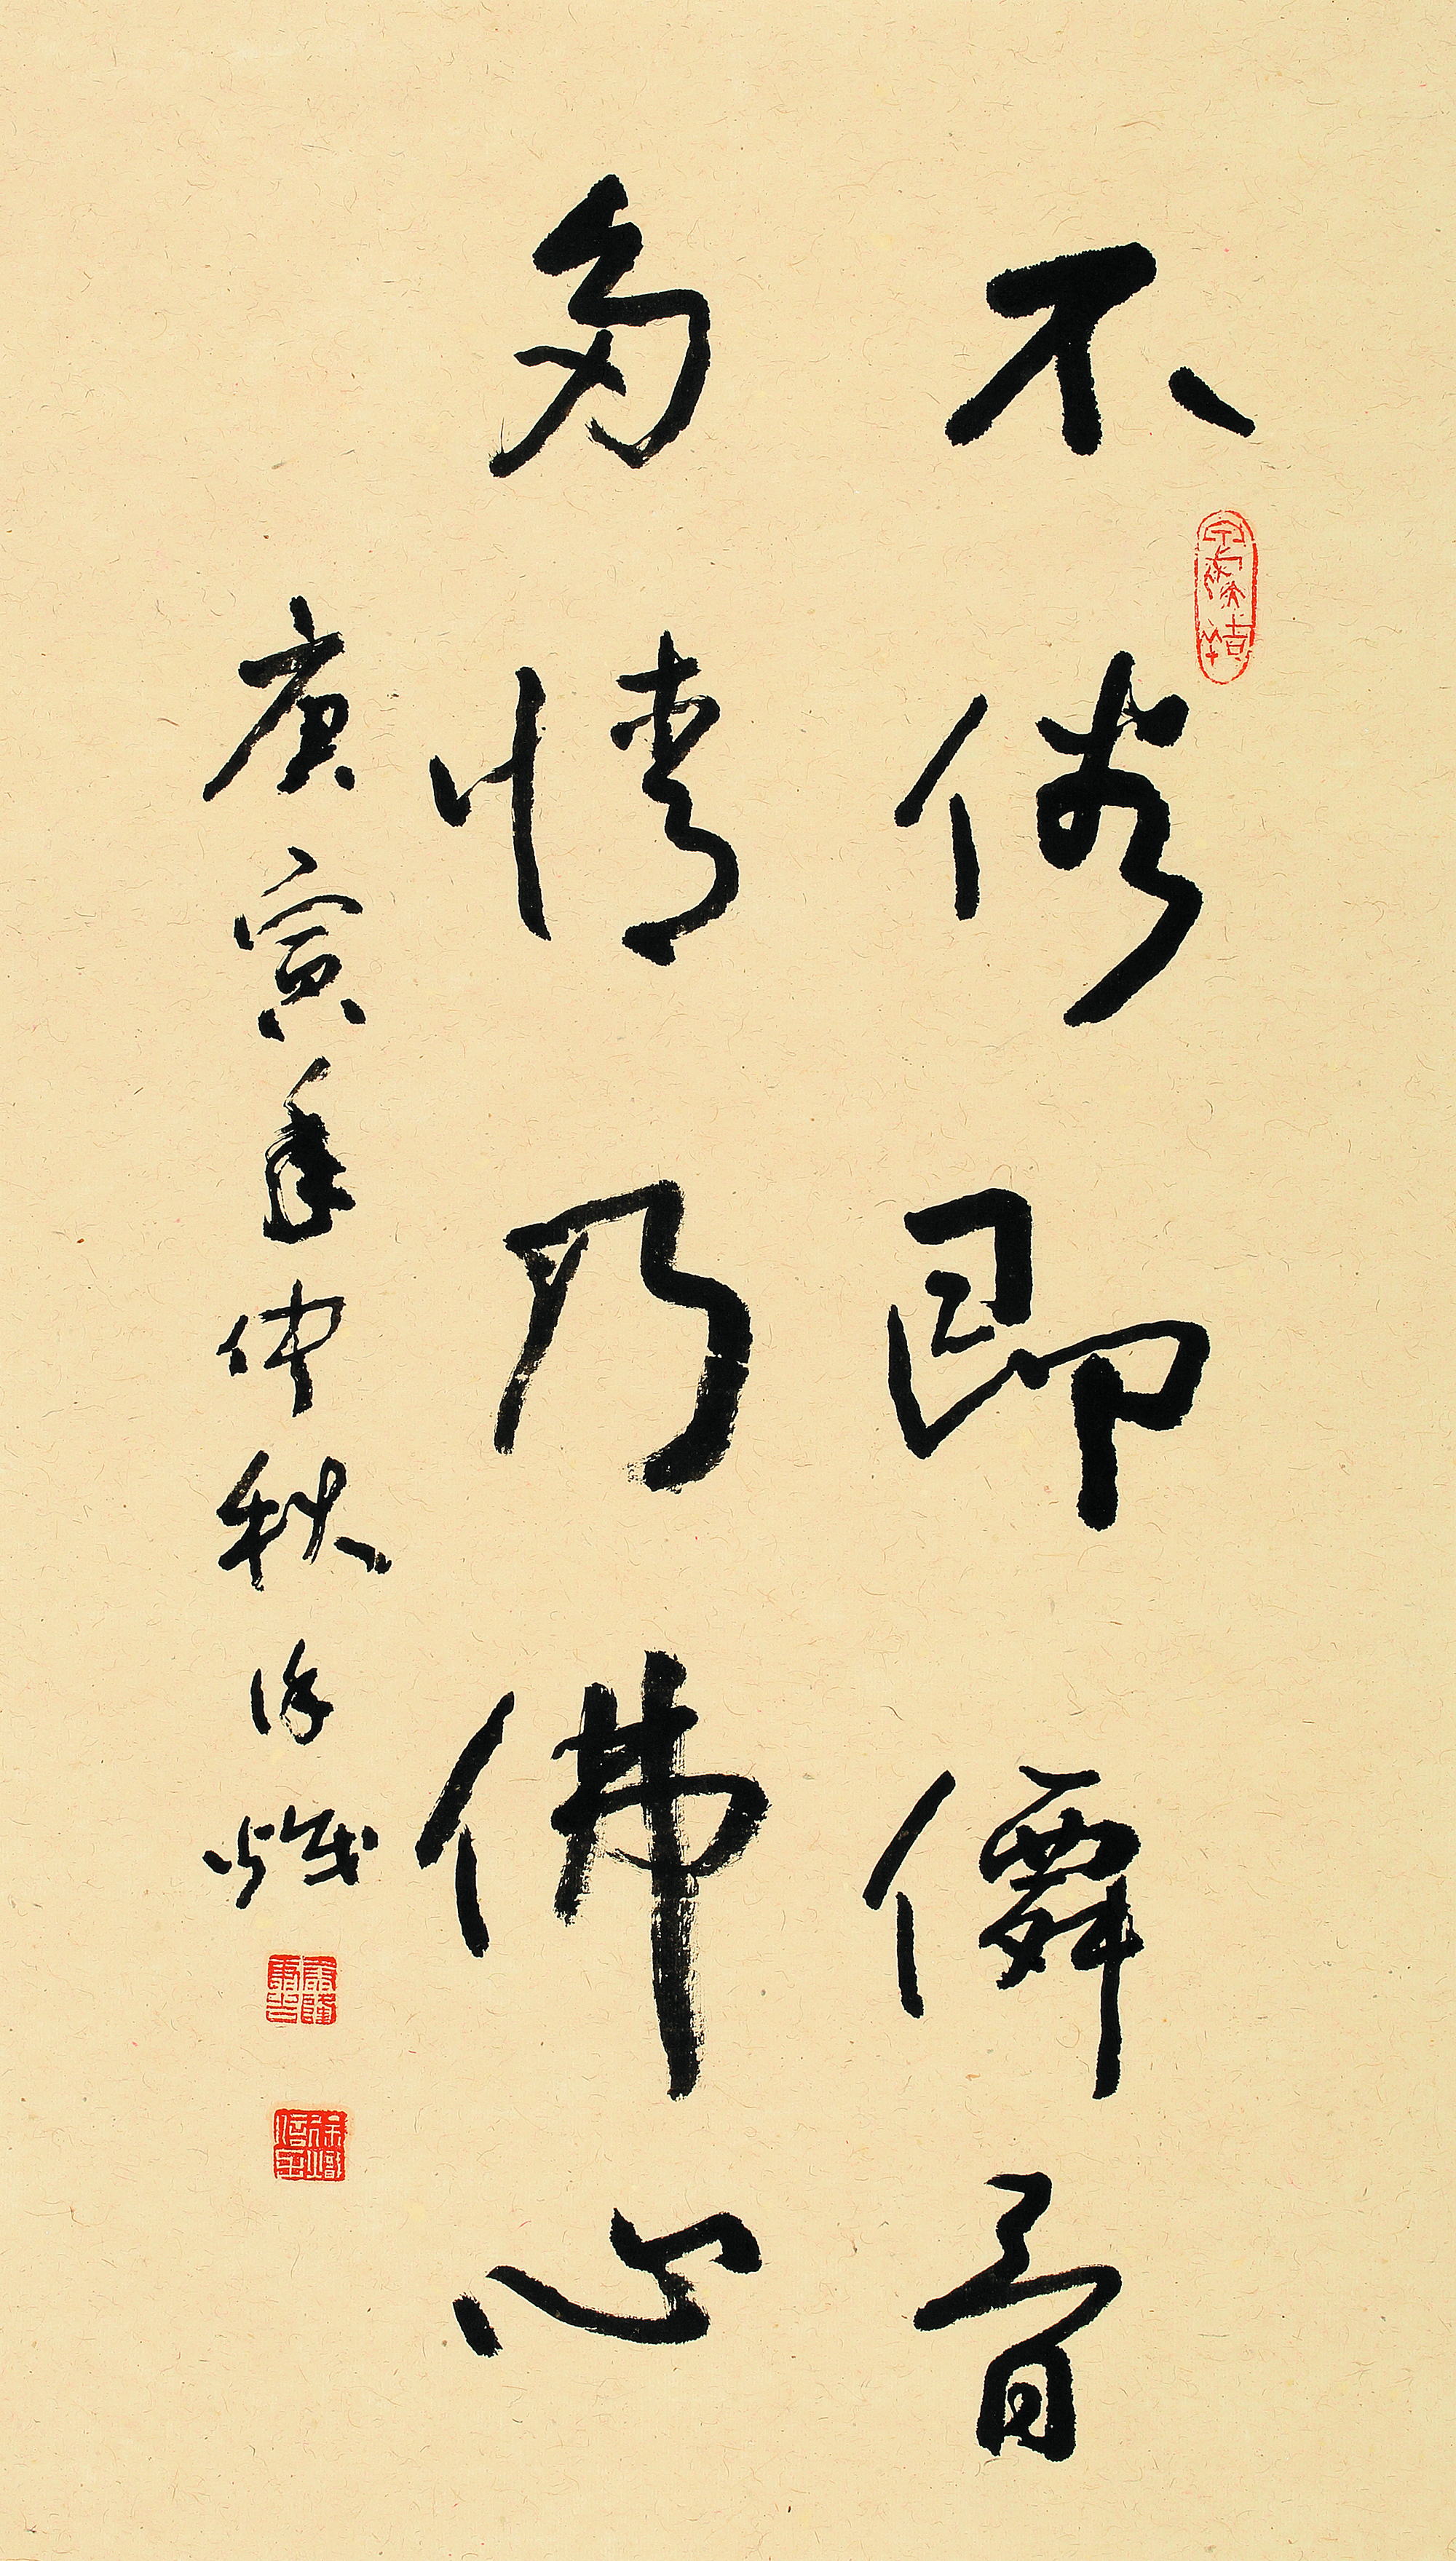 不俗即僊骨
多情乃佛心
庚寅年仲秋徐熾